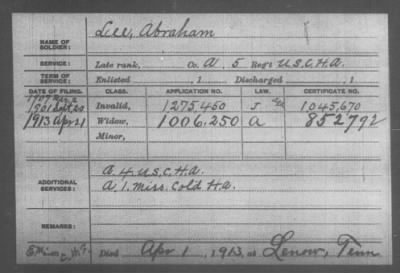 NAME OF SOLDIER: Lee, Abraham
SERVICE: Late rank, Co. A, 5 Reg't U.S.C.H.A.
TERM OF SERVICE: Enlisted , 1 Discharged , 1
DATE OF FILING. CLASS. APPLICATION NO. LAW. CERTIFICATE NO.
1901 Sept, 20 Invalid, 1275450 J 1,045,670
1913 Apr 21 Widow, 1006.250 a 852792
Minor,
ADDITIONAL SERVICES:
A. 4 U.S.C.H.A.
A. 1. Miss. Cold H.A.
REMARKS:
Died Apr 1, 1913, at Lenow, Tenn